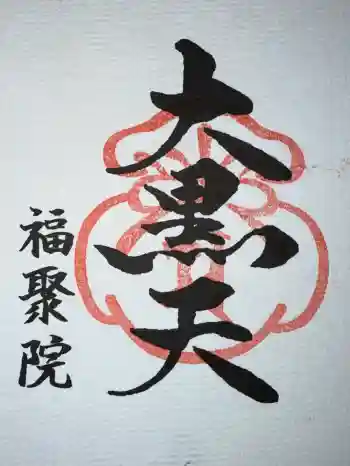 大黒天
福聚院